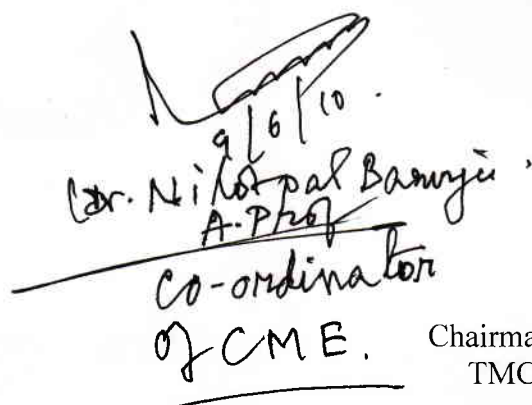 9/6/10.
(Dr. Nilotpal Banerjee.
A. Prof
Co-ordinator
of CME.
Chairma
TMC